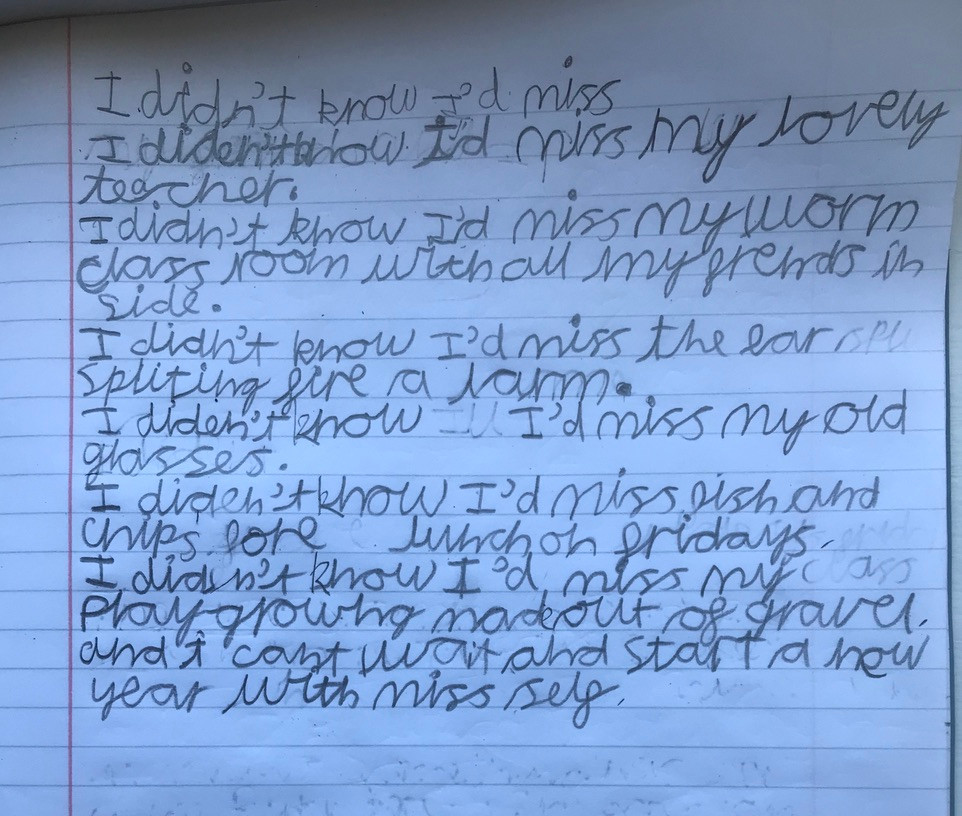 I didn't know I'd miss
I diden't know I'd miss my lovely
teacher.
I didn't know I'd miss my worm
class room with all my frends in
side.
I didn't know I'd miss the ear spli
spliting fire a larm.
I diden't know I'd miss my old
glasses.
I diden't know I'd miss fish and
chips fore lunch on fridays.
I didn't know I'd miss my class
play growng made out of gravel.
and I cant wait and start a now
year with miss self.